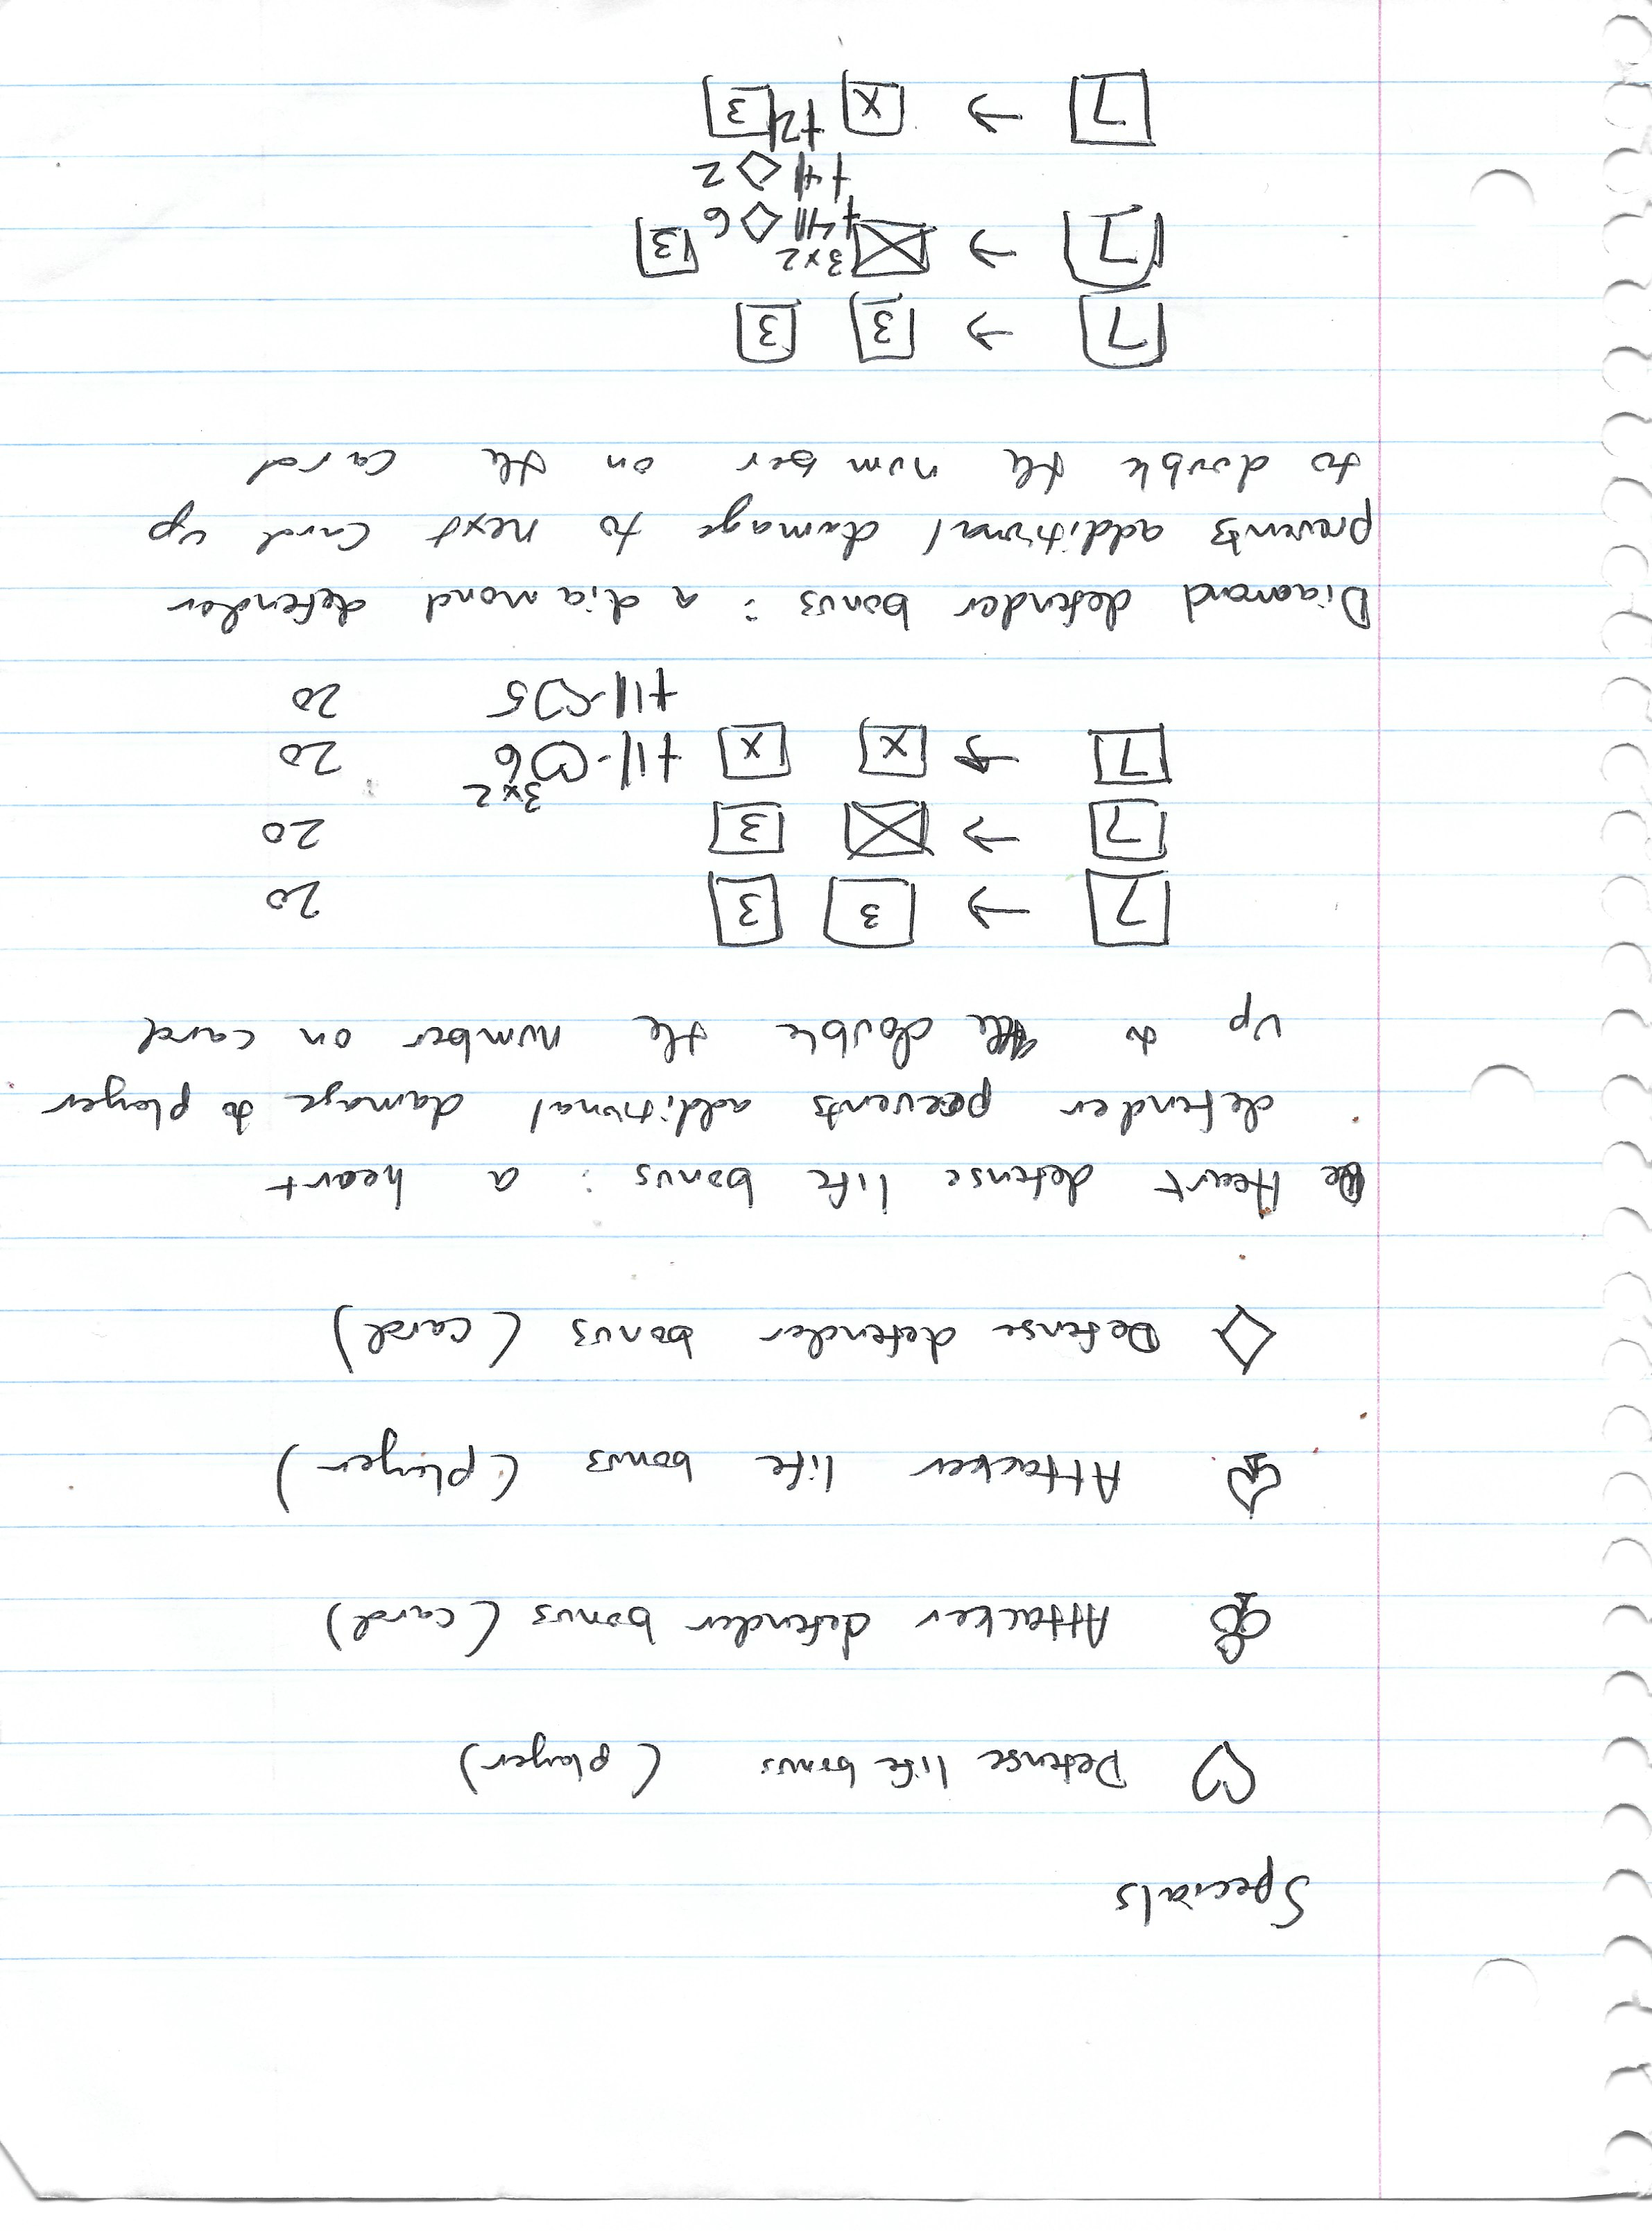 Specials
♡ Defense life bonus (player)
♧ Attacker defender bonus (card)
♤ Attacker life bonus (player)
◇ Defense defender bonus (card)
Heart defense life bonus : a heart
defender prevents additional damage to player
up to double the number on card
7 → 3 3 20
7 → X 3 20
3x2
7 → X X +1 - ♡6 20
+1 - ♡5 20
Diamond defender bonus : a diamond defender
prevents additional damage to next card up
to double the number on the card
7 → 3 3
7 → X 3x2 3
+4 ◇ 6
+4 ◇ 2
7 → X +2 3